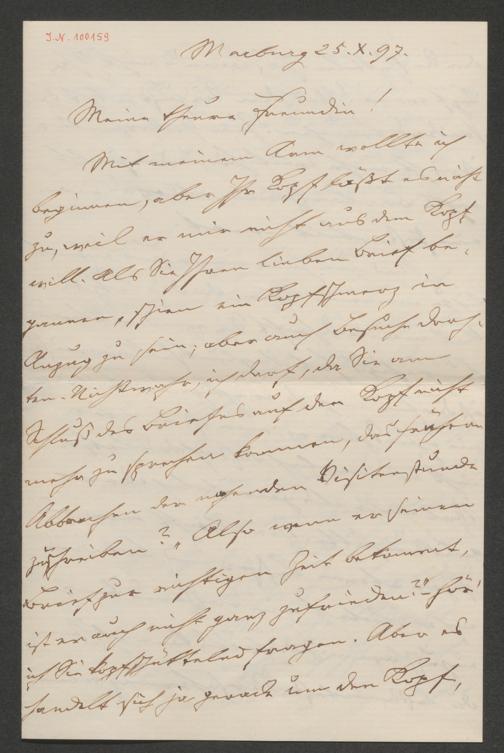 J.N. 100159
Marburg 25.X.97.
Meine theure Freundin!
Mit meinem Arm wollte ich
beginnen, aber Ihr Kopf läßt es nicht
zu, weil er mir nicht aus dem Kopf
will. Als Sie Ihren lieben Brief be-
gannen, schien ein Kopfschmerz im
Anzug zu sein; aber auch Besuche droh-
ten. Nichtwahr, ich darf, da Sie am
Schluß des Briefes auf den Kopf nicht
mehr zu sprechen kommen, das frühere
Abbrechen der nahenden Visitenstunde
zuschreiben? „Also wenn er seinen
Brief zur richtigen Zeit bekommt,
ist er auch nicht ganz zufrieden?" hör'
ich Sie kopfschüttelnd fragen. Aber es
handelt sich ja gerade um den Kopf,